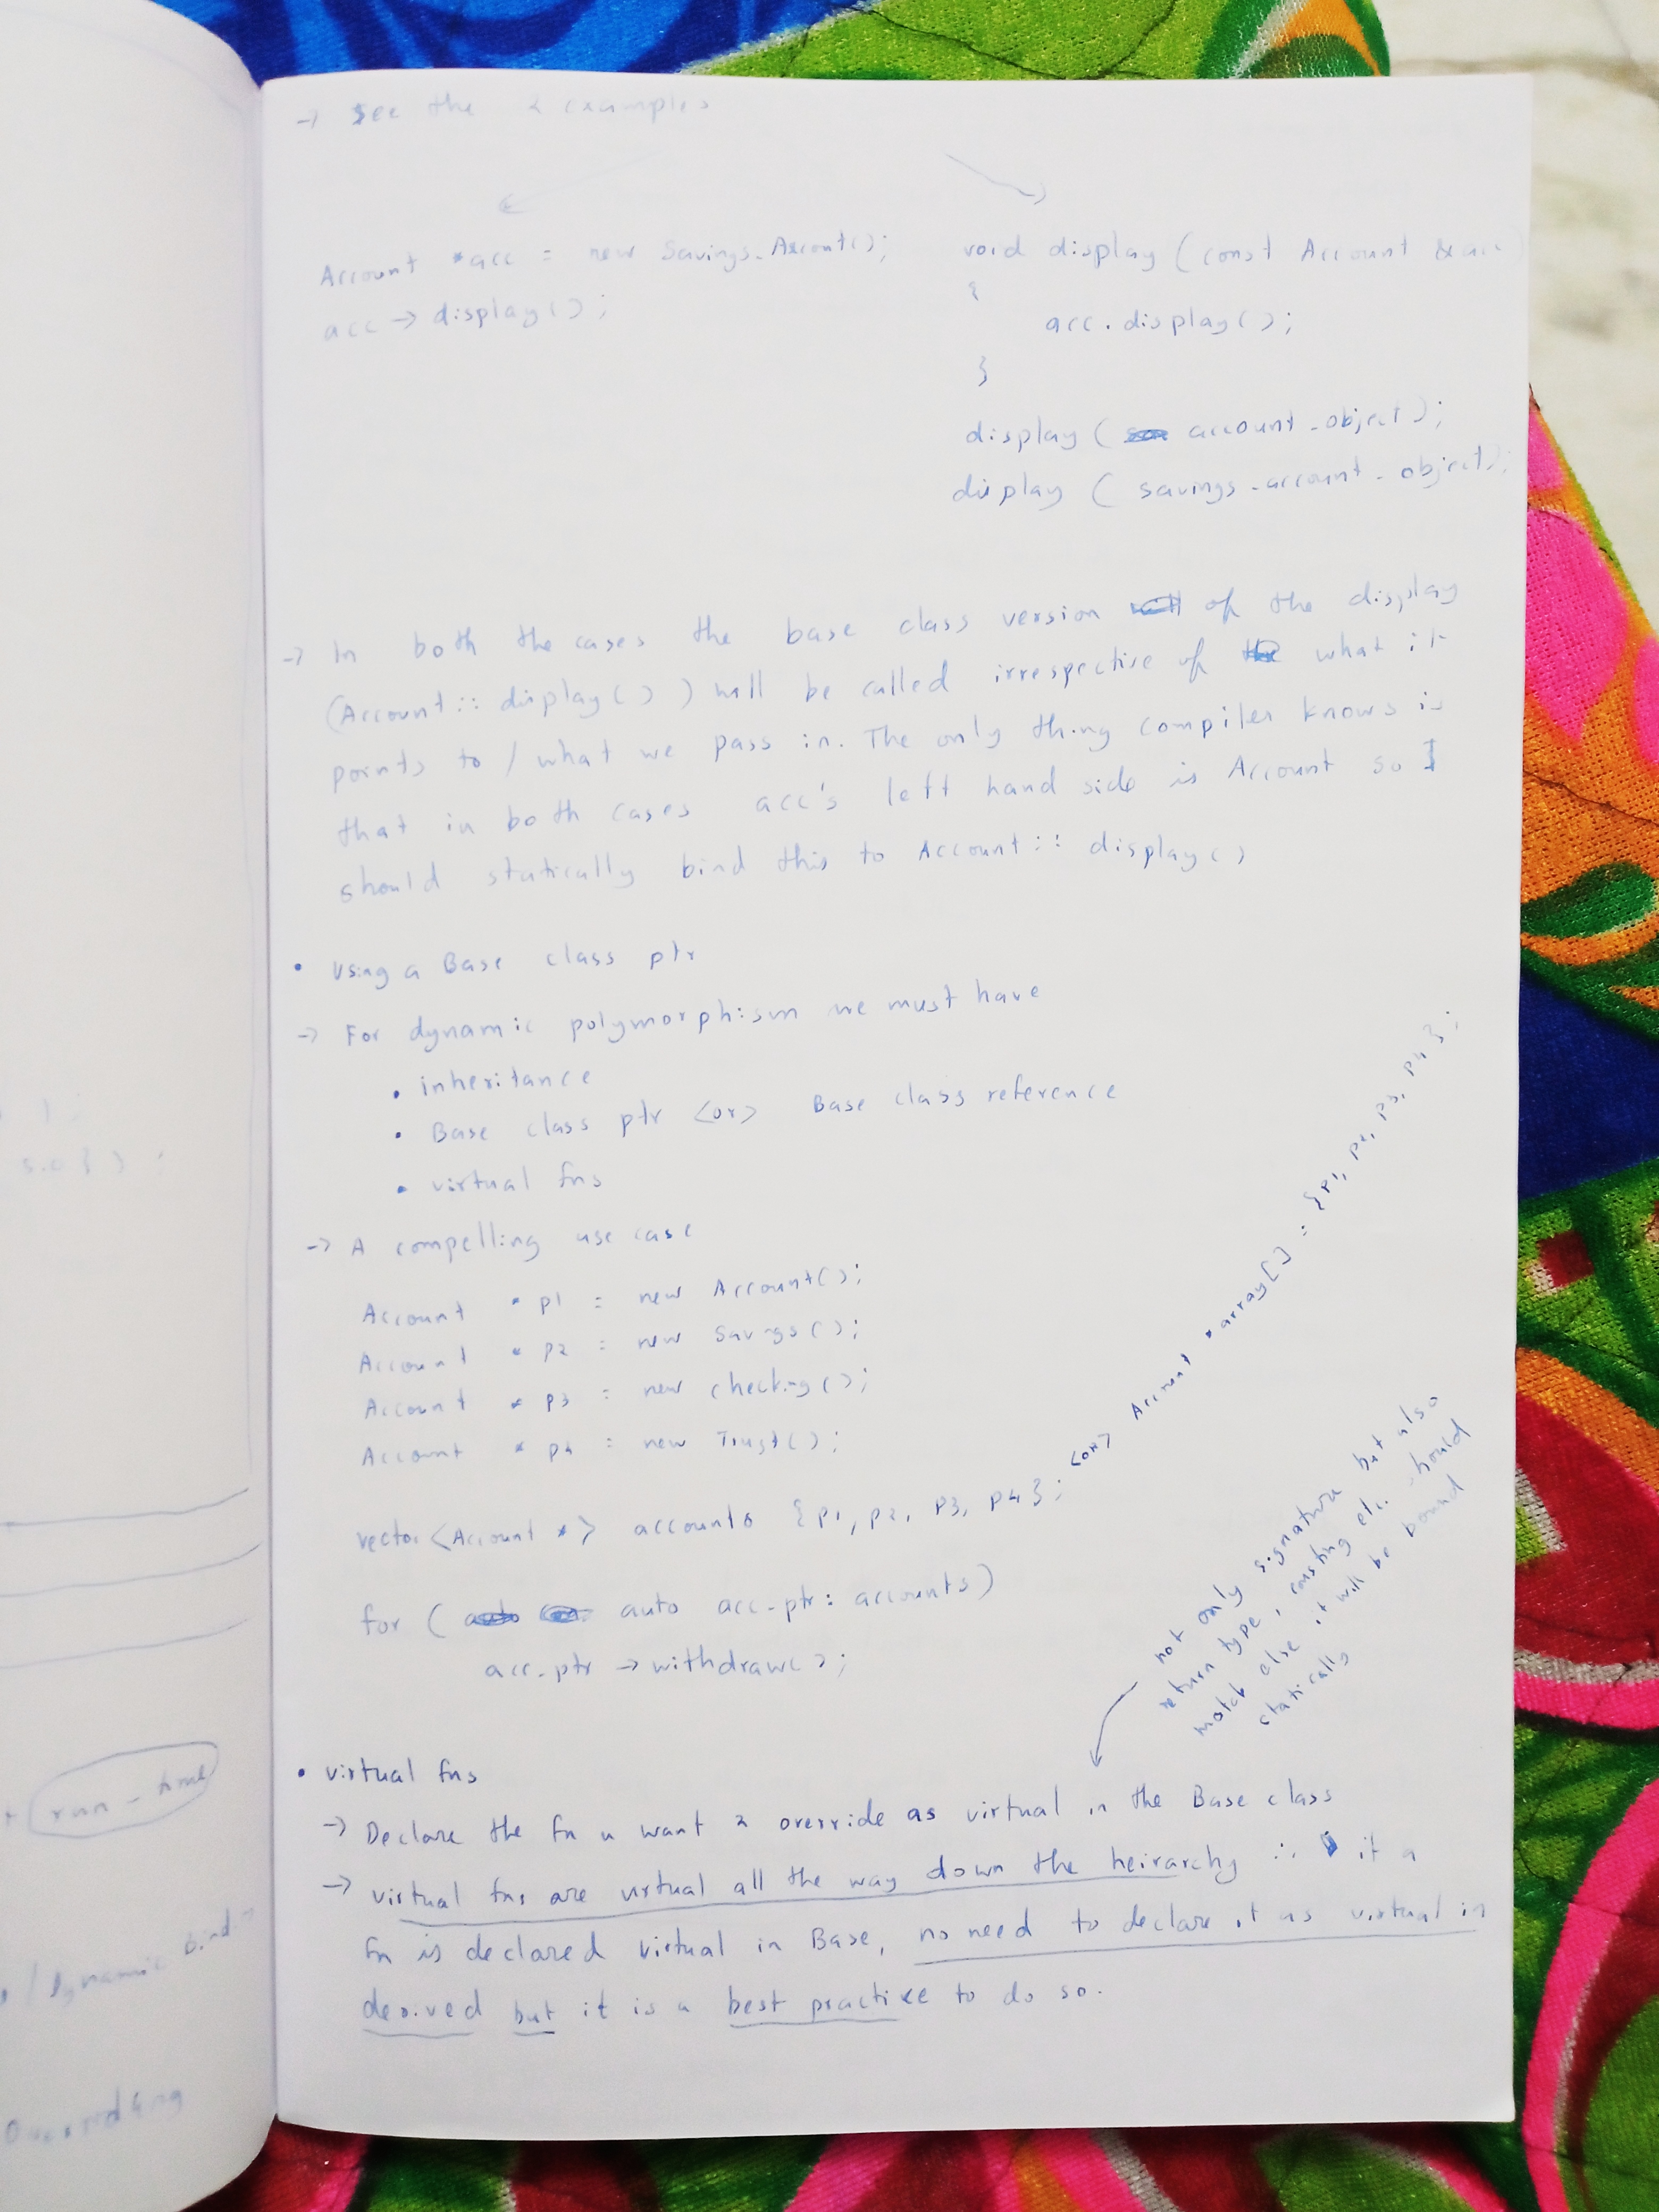 → See the 2 examples
Account *acc = new Savings_Account();
acc → display();
void display (const Account &acc
{
acc.display();
}
display ( account_object);
display ( savings_account_object);
→ In both the cases the base class version of the display
(Account::display() ) will be called irrespective of what it
points to / what we pass in. The only thing compiler knows is
that in both cases acc's left hand side is Account so I
should statically bind this to Account::display()
• Using a Base class ptr
→ For dynamic polymorphism we must have
• inheritance
• Base class ptr <or> Base class reference
• virtual fns
→ A compelling use case
Account * p1 = new Account();
Account * p2 = new Savings();
Account * p3 = new checking();
Account * p4 = new Trust();
vector <Account *> accounts {p1, p2, p3, p4};
<or> Account *array[] = {p1, p2, p3, p4};
for ( auto acc_ptr : accounts)
acc_ptr → withdraw();
not only signature but also
return type, consting etc. should
match else it will be bound
statically
• virtual fns
→ Declare the fn u want 2 override as virtual in the Base class
→ virtual fns are virtual all the way down the heirarchy ∴ if a
fn is declared virtual in Base, no need to declare it as virtual in
derived but it is a best practice to do so.
run-time
/ Dynamic bind
Overriding